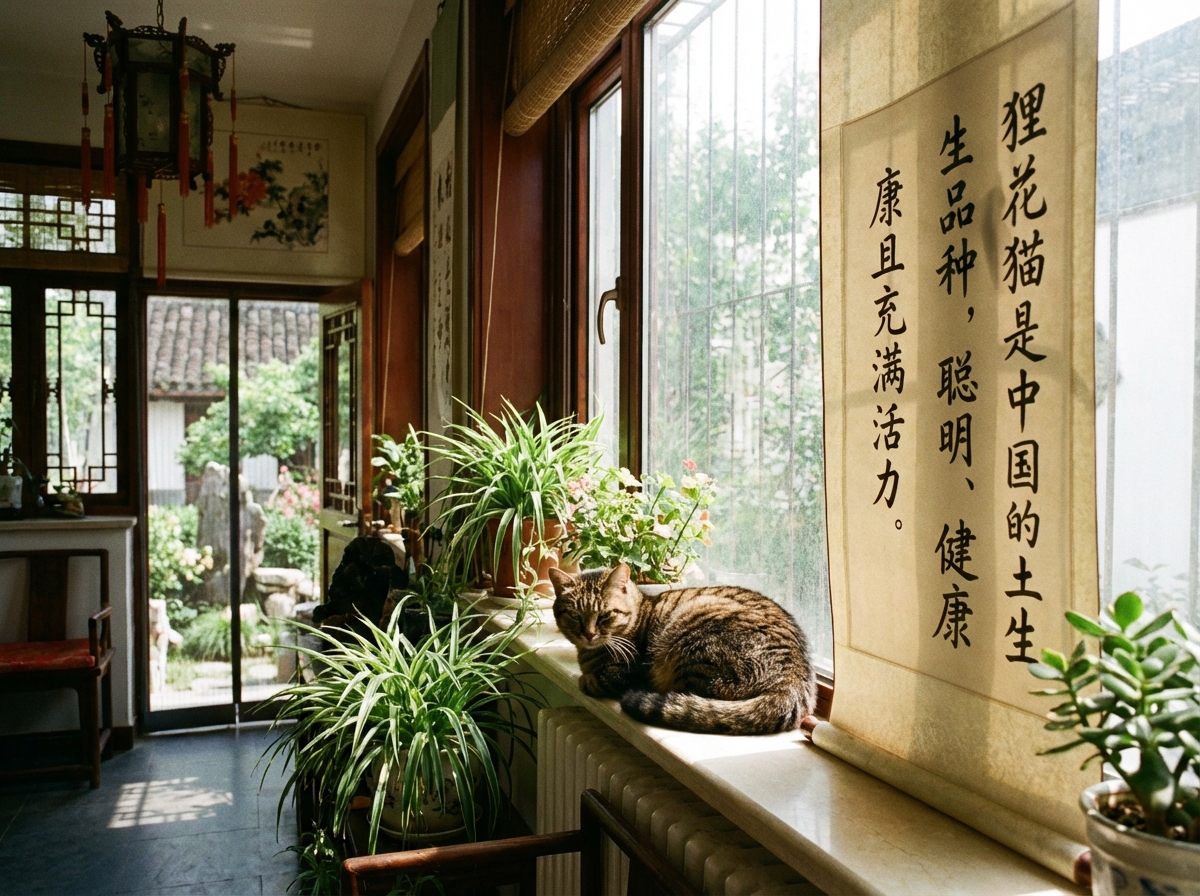 狸花猫是中国的土生
生品种，聪明、健康
康且充满活力。